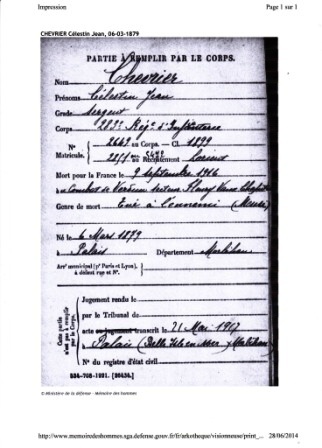 Impression Page 1 sur 1
CHEVRIER Célestin Jean, 06-03-1879
PARTIE À REMPLIR PAR LE CORPS.
Nom Chevrier
Prénoms Célestin Jean
Grade Sergent
Corps 283e Régt d'Infanterie
N° 2649 au Corps. — Cl. 1899
Matricule. au Recrutement Lorient
Mort pour la France le 9 septembre 1916
au Combat de Verdun secteur Fleury Vaux Chapitre
Genre de mort Tué à l'ennemi (Meuse)
Né le 6 Mars 1879
à Palais Département Morbihan
Arrt municipal (pr Paris et Lyon),
à défaut rue et N°.
Cette partie
n'est pas à remplir
par le Corps.
Jugement rendu le
par le Tribunal de
acte ou jugement transcrit le 21 Mai 1917
à Palais (Belle Isle en Mer) Morbihan
N° du registre d'état civil
534-708-1921. [26434.]
© Ministère de la défense - Mémoire des hommes
http://www.memoiredeshommes.sga.defense.gouv.fr/fr/arkotheque/visionneuse/print_... 28/06/2014